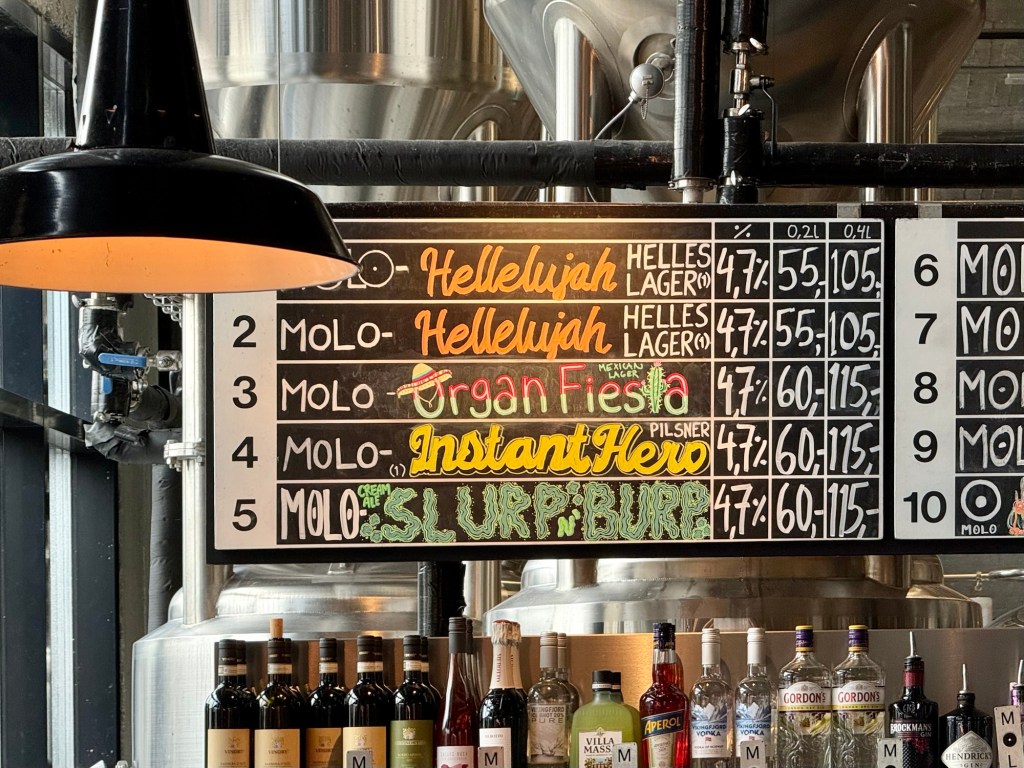 % 0,2l 0,4l
MOLO- Hellelujah HELLES LAGER(1) 4,7% 55,- 105,-
2 MOLO- Hellelujah HELLES LAGER(1) 4,7% 55,- 105,-
3 MOLO - Organ Fiesta MEXICAN LAGER 4,7% 60,- 115,-
4 MOLO- (1) Instant Hero PILSNER 4,7% 60,- 115,-
5 MOLO- CREAM ALE SLURP N' BURP 4,7% 60,- 115,-
6 MO
7 MO
8 MO
9 MOL
10 MOLO
VILLA
MASSA
APEROL
VODKA
VODKA
GORDON'S
GORDON'S
BROCKMANS
GIN
HENDRICK'S
M
M
M
M
M
M